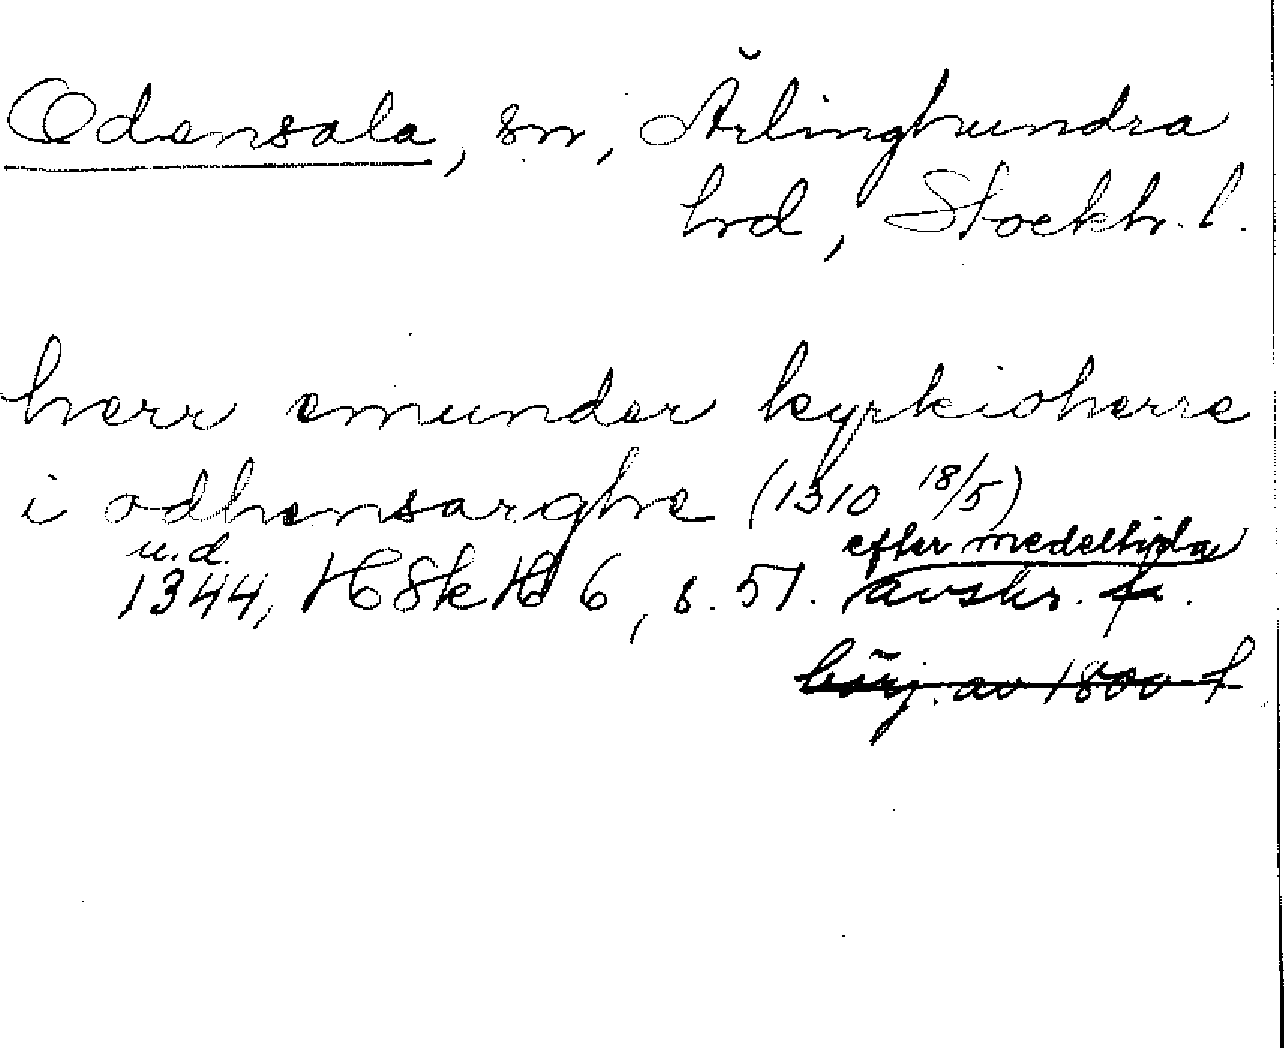 Odensala, sn, Ärlinghundra
hd, Stockh. l.
herr emunder kyrkioherre
i odhensarghe (1310 18/5)
u.d. efter medeltida
1344, HSkH 6, s. 51. avskr. fr.
börj. av 1800 t